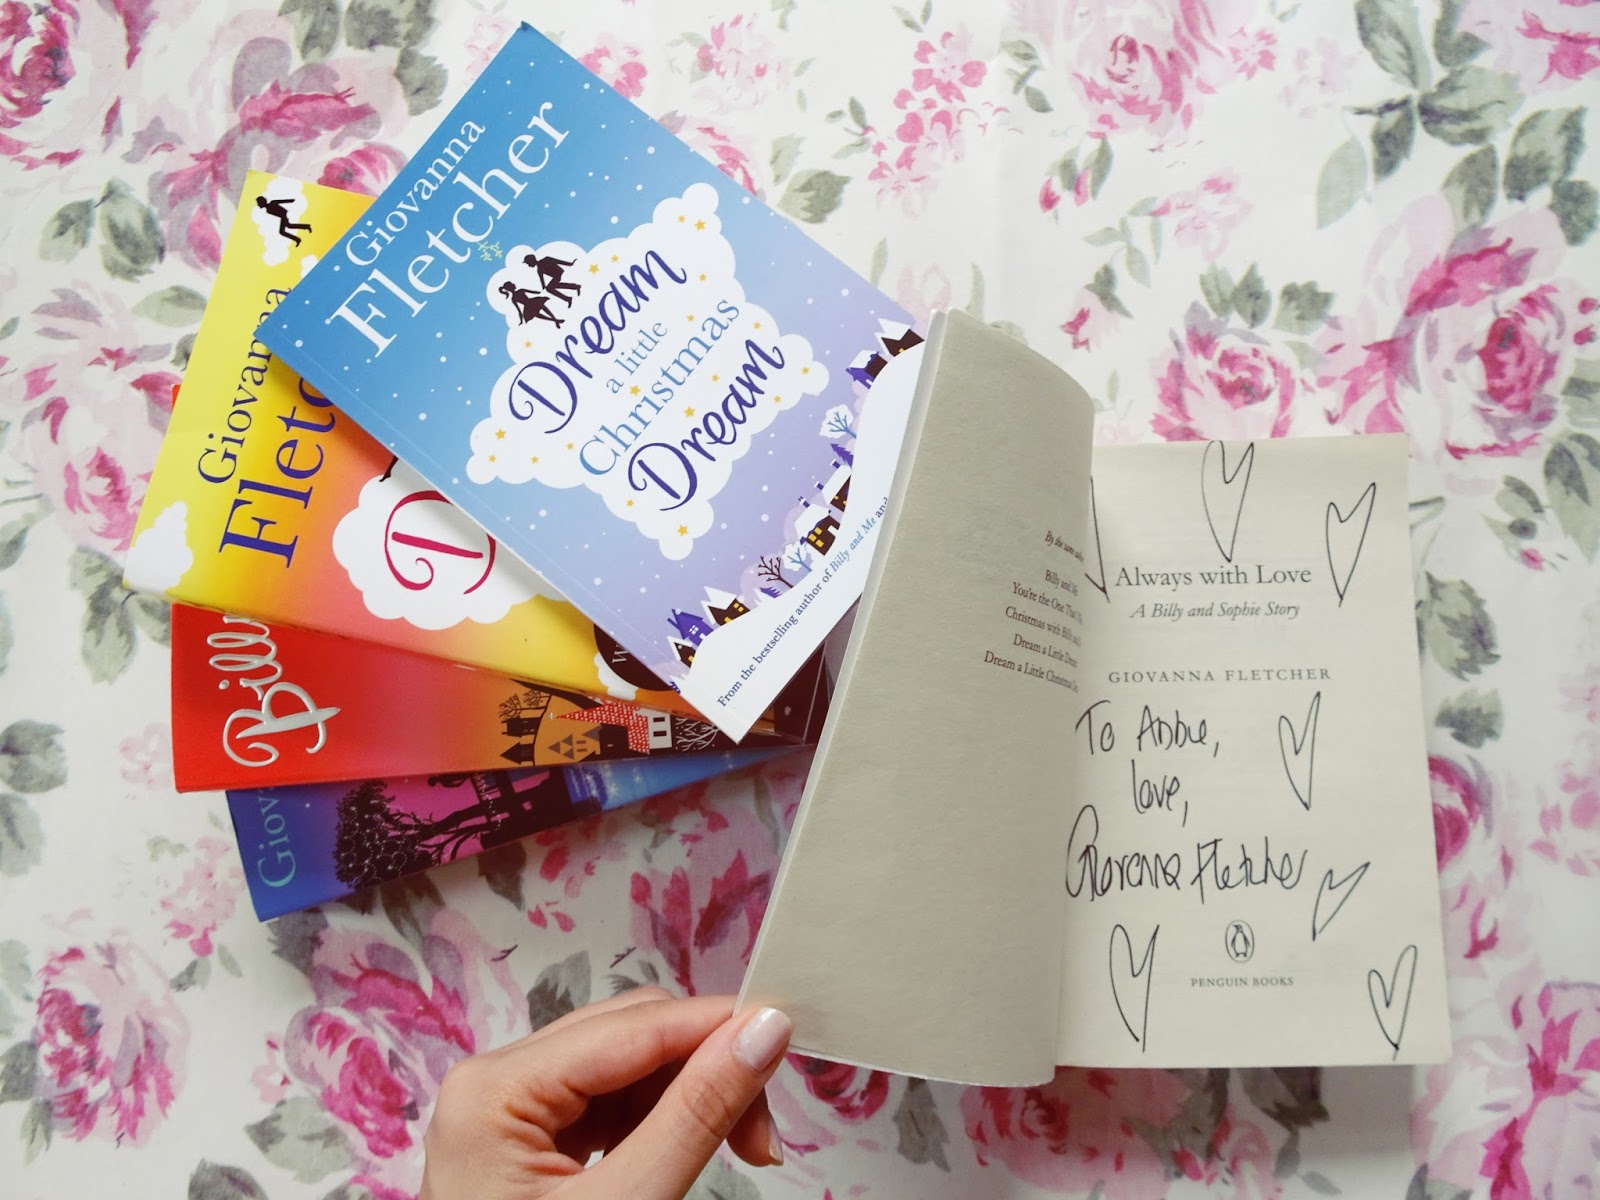 Giovanna
Fletcher
Dream
a little
Christmas
Dream
From the bestselling author of Billy and Me and
Giovanna
Fletc
D
W
Billy
Giov
By the same
Billy and Me
You're the One That I
Christmas with Billy and
Dream a Little Dream
Dream a Little Christmas
Always with Love
A Billy and Sophie Story
GIOVANNA FLETCHER
To Abbie,
love,
Giovanna Fletcher
PENGUIN BOOKS